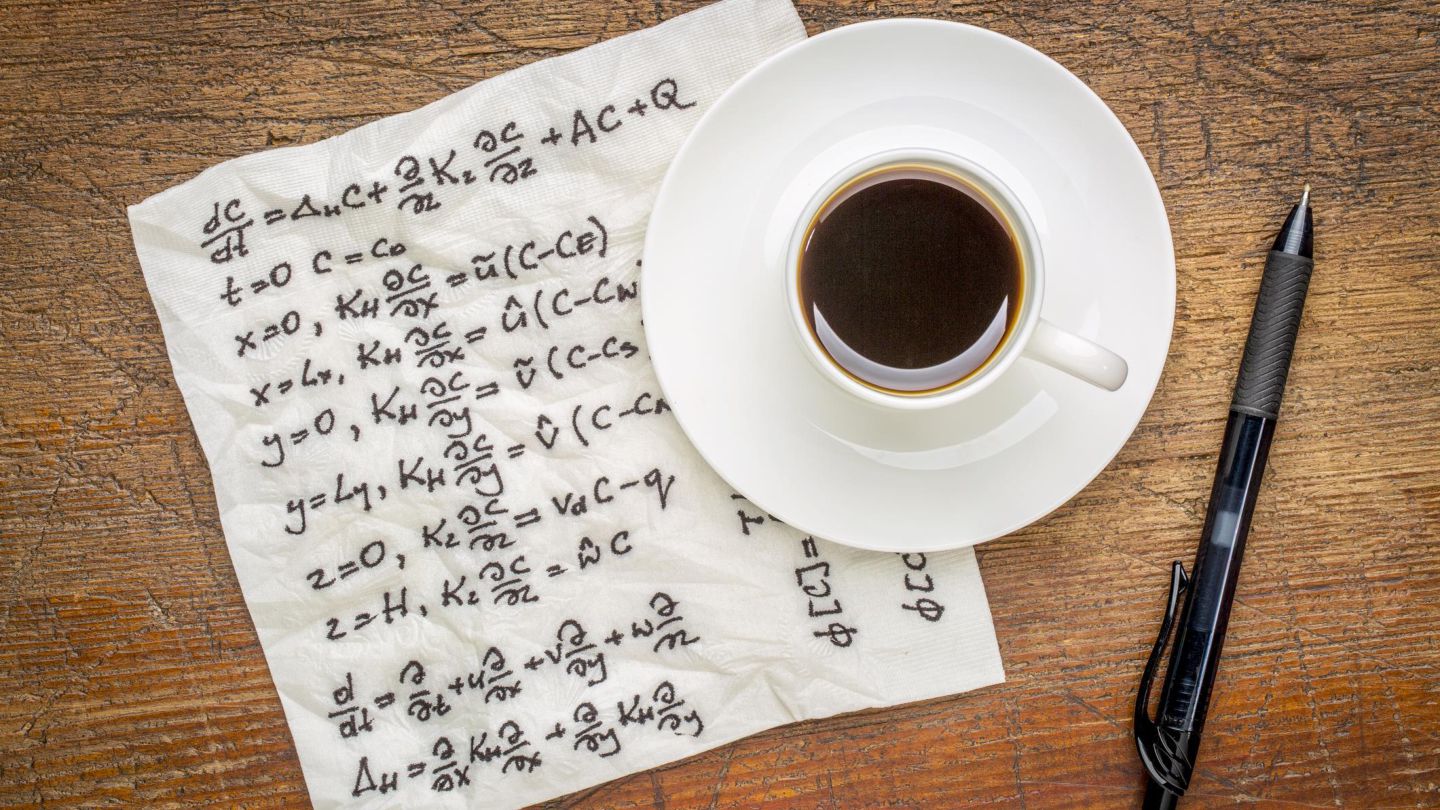 dC/dt = Δ_H C + ∂/∂z K_z ∂C/∂z + AC + Q
t=0 C = C_0
x=0, K_H ∂C/∂x = ũ(C-C_E)
x=Lx, K_H ∂C/∂x = û(C-C_W
y=0, K_H ∂C/∂y = ṽ(C-C_S
y=Ly, K_H ∂C/∂y = v̂(C-C
z=0, K_z ∂C/∂z = v_d C - q
z=H, K_z ∂C/∂z = ŵC
d/dt = ∂/∂t + u ∂/∂x + v ∂/∂y + w ∂/∂z
Δ_H = ∂/∂x K_H ∂/∂x + ∂/∂y K_H ∂/∂y